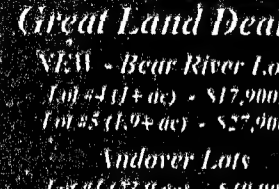 Great Land Deal
NEW - Bear River Lo
Lot #4 (1+ ac) - $17,900
Lot #5 (1.9+ ac) - $27,900
Andover Lots
Lot #1